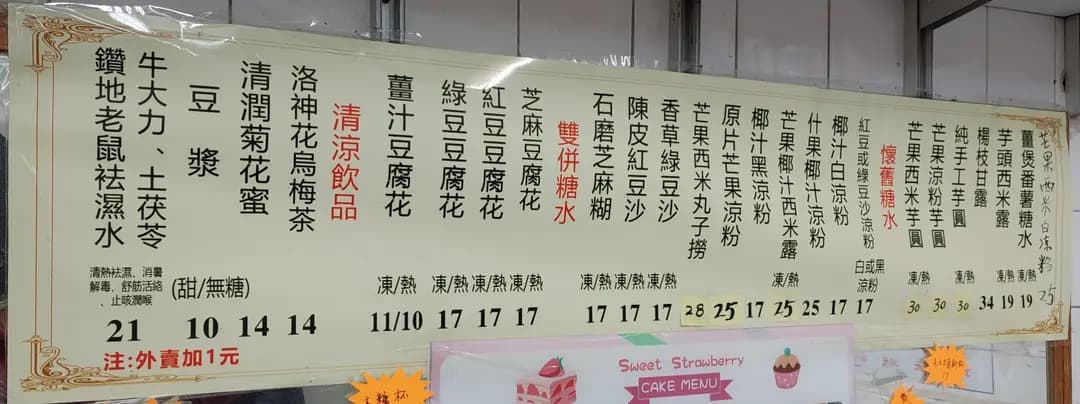 芒果西米白涼粉 25
薑煲番薯糖水 凍/熱 19
芋頭西米露 凍/熱 19
楊枝甘露 34
純手工芋圓 凍/熱 30
芒果涼粉芋圓 30
芒果西米芋圓 凍/熱 30
懷舊糖水
紅豆或綠豆沙涼粉 白或黑涼粉 17
椰汁白涼粉 17
什果椰汁涼粉 25
芒果椰汁西米露 凍/熱 25
椰汁黑涼粉 17
原片芒果涼粉 25
芒果西米丸子撈 28
香草綠豆沙 凍/熱 17
陳皮紅豆沙 凍/熱 17
石磨芝麻糊 凍/熱 17
雙併糖水
芝麻豆腐花 凍/熱 17
紅豆豆腐花 凍/熱 17
綠豆豆腐花 凍/熱 17
薑汁豆腐花 凍/熱 11/10
清涼飲品
洛神花烏梅茶 14
清潤菊花蜜 14
豆漿 (甜/無糖) 10
牛大力、土茯苓
鑽地老鼠袪濕水
清熱袪濕、消暑
解毒、舒筋活絡
、止咳潤喉
21
注:外賣加1元
Sweet Strawberry
CAKE MENU